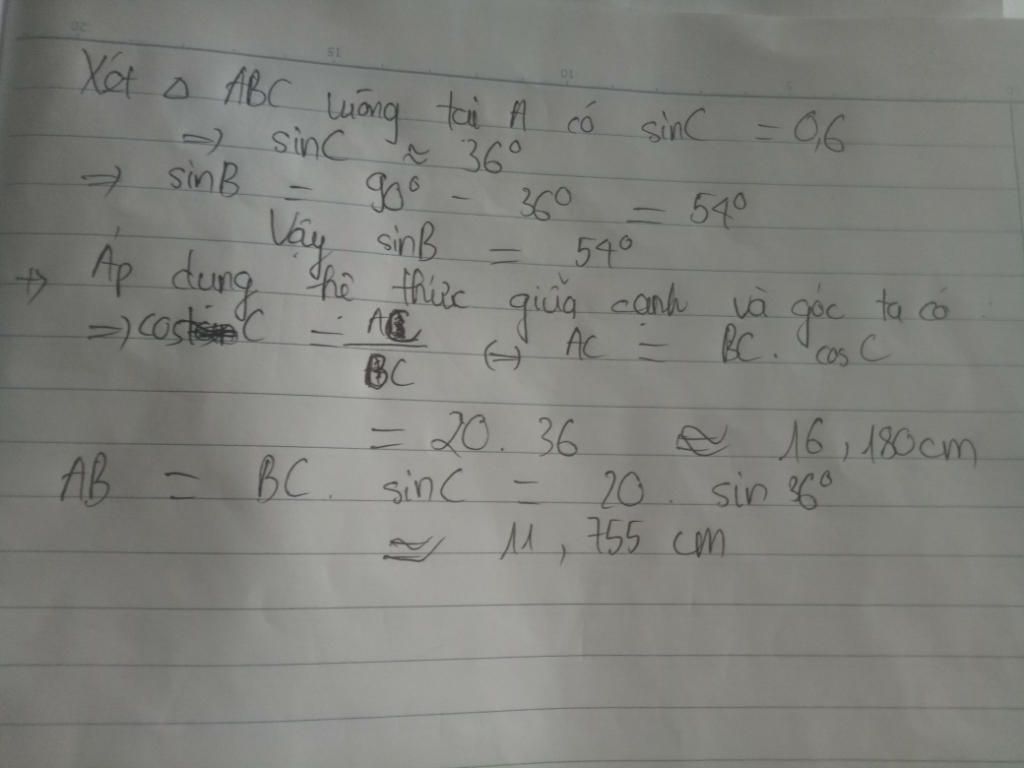 Xét △ ABC vuông tại A có sinC = 0,6
=> sinC ≈ 36°
=> sinB = 90° - 36° = 54°
Vậy sinB = 54°
→ Áp dụng hệ thức giữa cạnh và góc ta có :
=> cos C = AC/BC <-> AC = BC. cos C
= 20. 36 ≈ 16,180cm
AB = BC. sinC = 20. sin 36°
≈ 11,755 cm